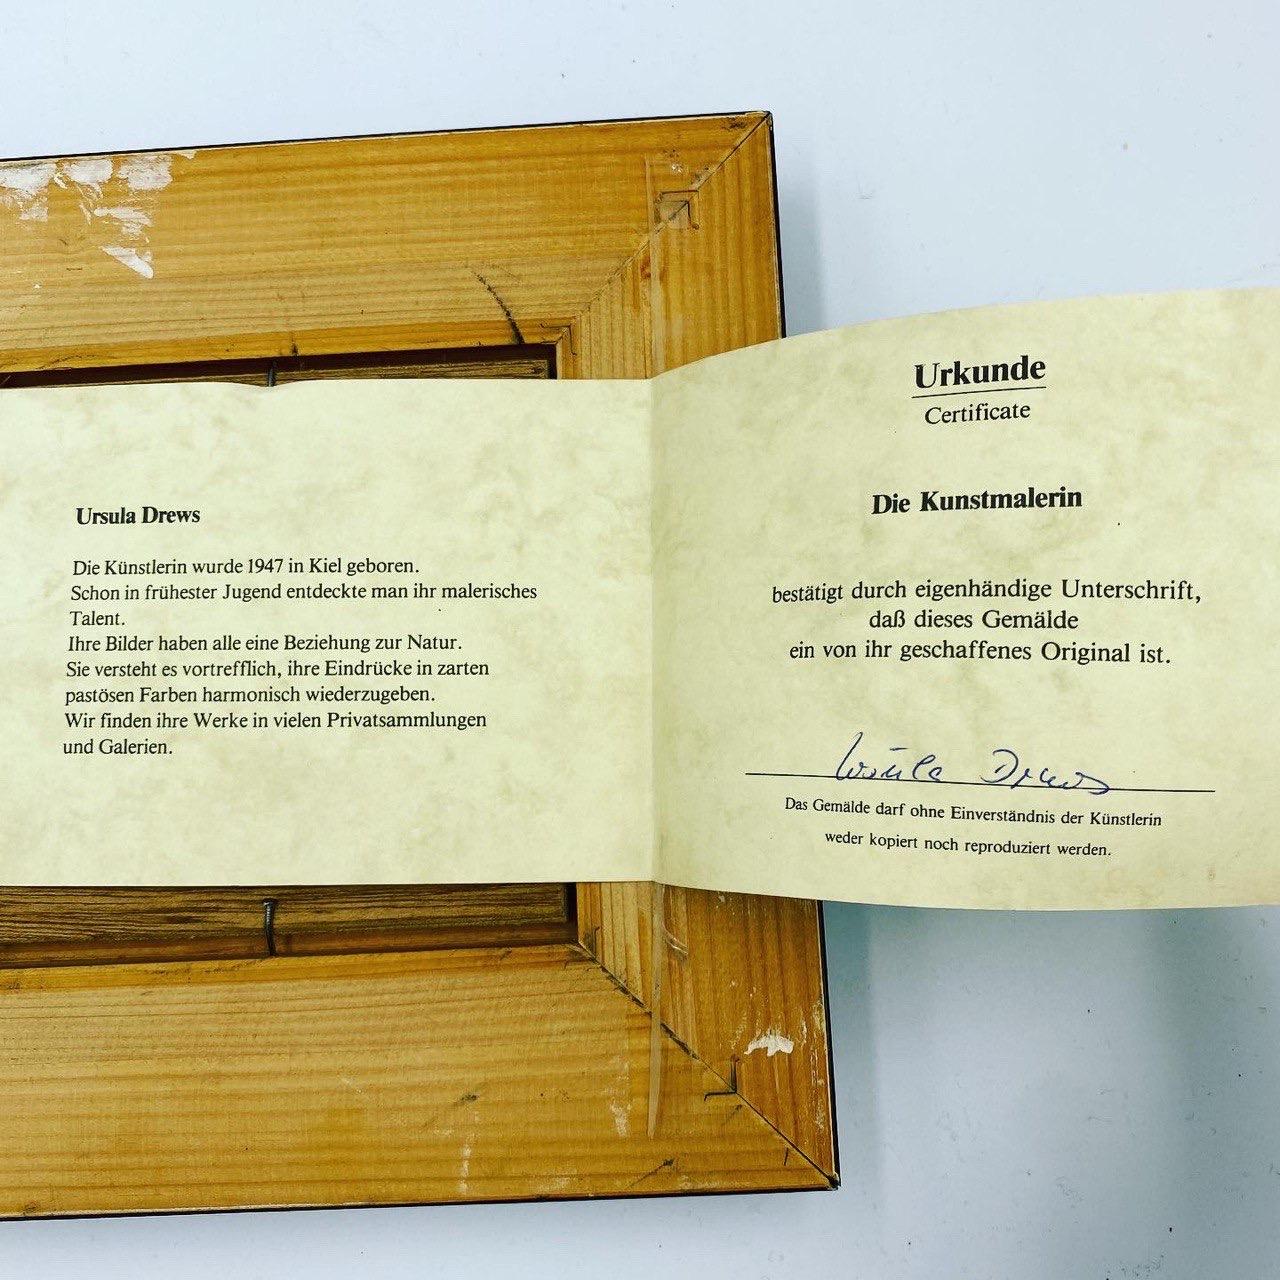 Ursula Drews
Die Künstlerin wurde 1947 in Kiel geboren.
Schon in frühester Jugend entdeckte man ihr malerisches
Talent.
Ihre Bilder haben alle eine Beziehung zur Natur.
Sie versteht es vortrefflich, ihre Eindrücke in zarten
pastösen Farben harmonisch wiederzugeben.
Wir finden ihre Werke in vielen Privatsammlungen
und Galerien.
Urkunde
Certificate
Die Kunstmalerin
bestätigt durch eigenhändige Unterschrift,
daß dieses Gemälde
ein von ihr geschaffenes Original ist.
Ursula Drews
Das Gemälde darf ohne Einverständnis der Künstlerin
weder kopiert noch reproduziert werden.